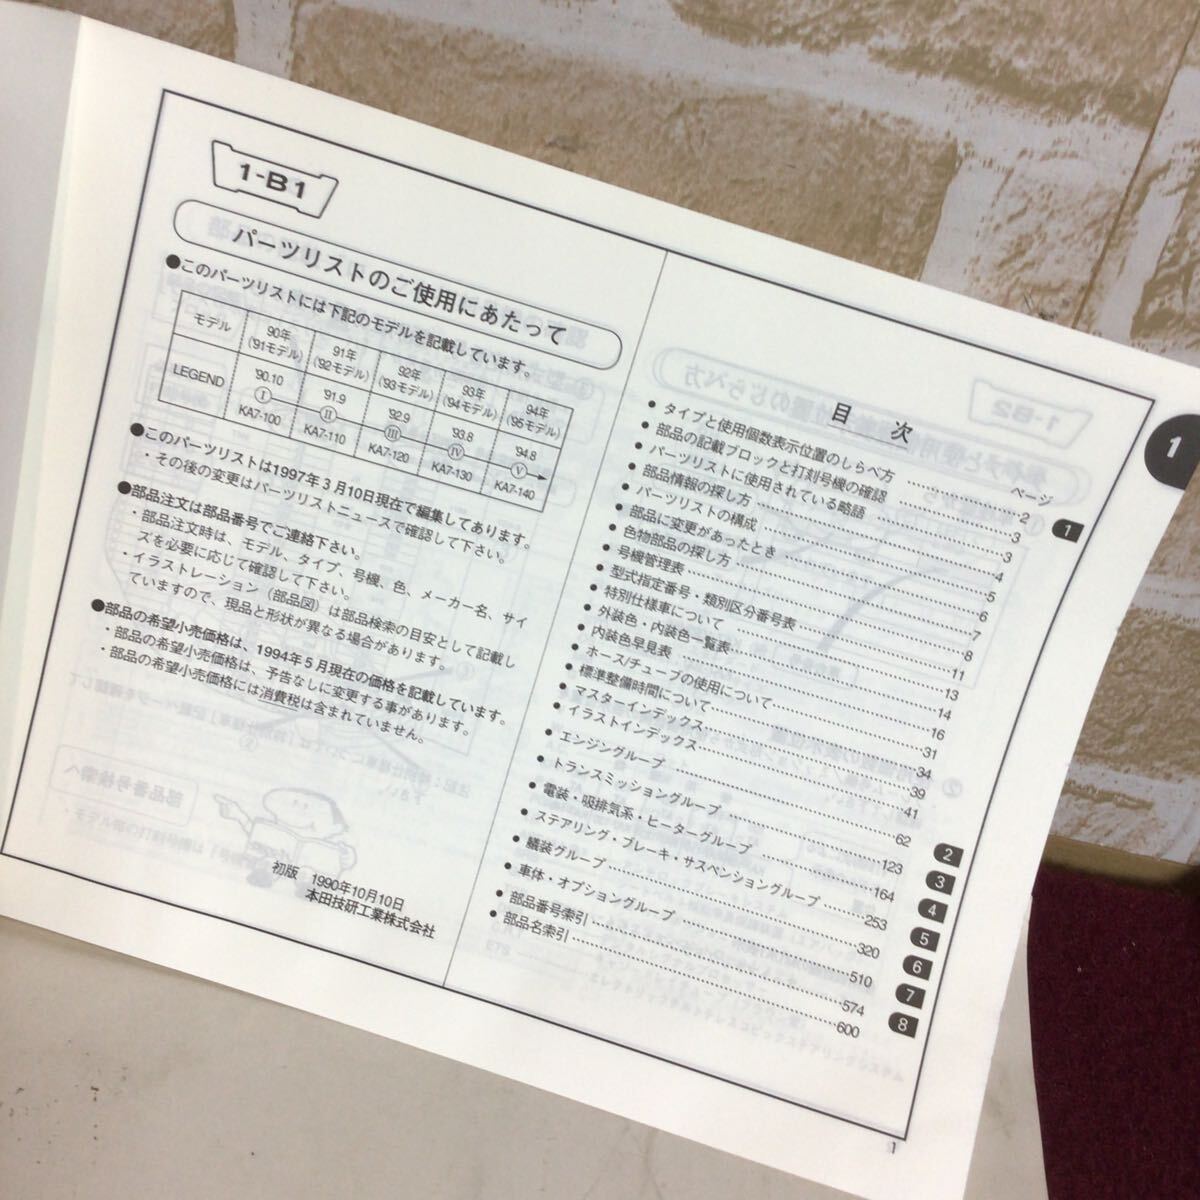 1-B1
パーツリストのご使用にあたって
●このパーツリストには下記のモデルを記載しています。
モデル
90年 ('91モデル)
91年 ('92モデル)
92年 ('93モデル)
93年 ('94モデル)
94年 ('95モデル)
LEGEND
'90.10 Ⅰ KA7-100
'91.9 Ⅱ KA7-110
'92.9 Ⅲ KA7-120
'93.8 Ⅳ KA7-130
'94.8 Ⅴ KA7-140
●このパーツリストは1997年3月10日現在で編集してあります。
・その後の変更はパーツリストニュースで確認して下さい。
●部品注文は部品番号でご連絡下さい。
・部品注文時は、モデル、タイプ、号機、色、メーカー名、サイ
ズを必要に応じて確認して下さい。
・イラストレーション（部品図）は部品検索の目安として記載し
ていますので、現品と形状が異なる場合があります。
●部品の希望小売価格は、1994年5月現在の価格を記載しています。
・部品の希望小売価格は、予告なしに変更する事があります。
・部品の希望小売価格には消費税は含まれていません。
初版 1990年10月10日
本田技研工業株式会社
目 次
ページ
● タイプと使用個数表示位置のしらべ方 2
● 部品の記載ブロックと打刻号機の確認 3
● パーツリストに使用されている略語 3
● 部品情報の探し方 4
● パーツリストの構成 5
● 部品に変更があったとき 6
● 色物部品の探し方 7
● 号機管理表 8
● 型式指定番号・類別区分番号表 11
● 特別仕様車について 13
● 外装色・内装色一覧表 14
● 内装色早見表 16
● ホース/チューブの使用について 31
● 標準整備時間について 34
● マスターインデックス 39
● イラストインデックス 41
● エンジングループ 62
● トランスミッショングループ 123
● 電装・吸排気系・ヒーターグループ 164
● ステアリング・ブレーキ・サスペンショングループ 253
● 艤装グループ 320
● 車体・オプショングループ 510
● 部品番号索引 574
● 部品名索引 600
1
1
2
3
4
5
6
7
8
1